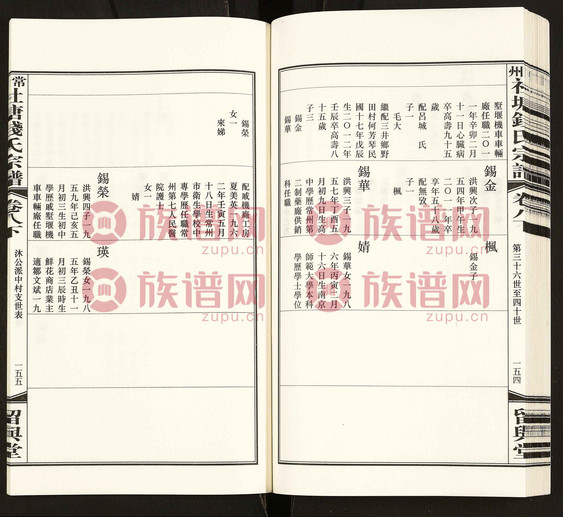 州社塘錢氏宗譜
卷八
第三十六世至四十世
一五四
留興堂
墅堰機車車輛
廠任職二〇一
一年辛卯二月
十一日心臟病
卒高壽九十五
歲
配呂城氏
子一
毛大
繼配三井鄉野
田村何芳琴民
國十七年戊辰
生二〇一二年
壬辰卒高壽八
十五歲
子三
錫金
錫華
錫金
洪興次子一九
五四年甲午生
二〇一 年卒
享年五十八歲
配無攷
子一
楓
錫華
洪興三子一九
五七年丁酉五
月初九日高生
中學歷常州第
二制藥廠供銷
科任職
楓
錫金子
婧
錫華女一九八
六年丙寅二月
十六日生南京
師範大學本科
學歷學士學位
錫榮
女一
來娣
配戚機廠工房
夏美英一九六
二年壬寅五月
十八日生常州
市衛生學校中
專學歷任職常
州第七人民醫
院護士
女一
婧
錫榮
洪興四子一九
五九年己亥五
月初三生初中
學歷戚墅堰機
車車輛廠任職
瑛
錫榮女一九八
五年乙丑十一
月初三辰時生
鮮花商店業主
適鄒文斌一九
常
社塘錢氏宗譜
卷八下
沐公派中村支世表
一五五
留興堂
族谱网
zupu.cn
族谱网
zupu.cn
族谱网
zupu.cn
族谱网
zupu.cn